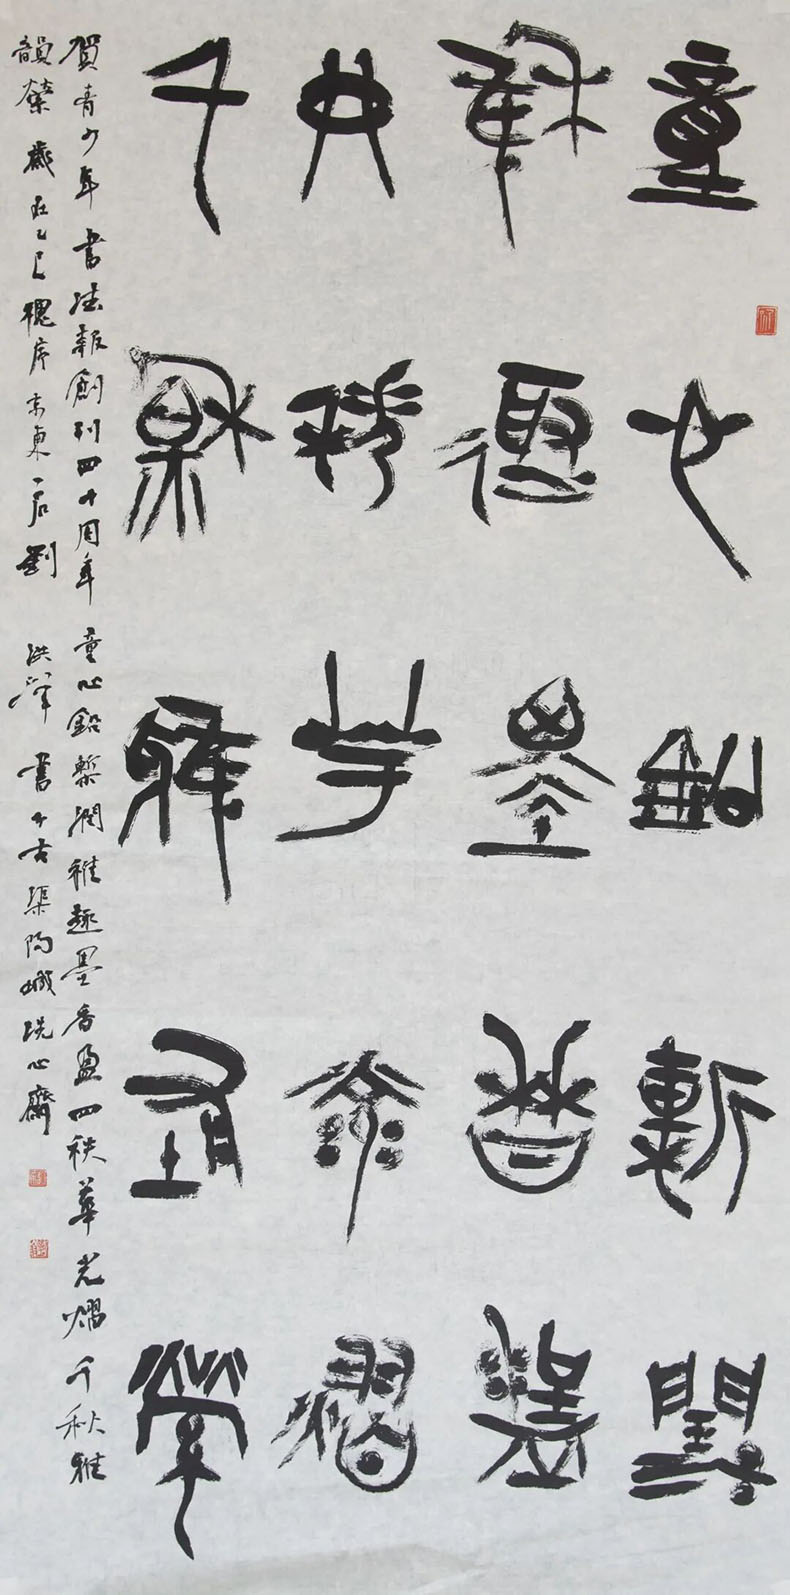 童心鉛槧潤
雅趣墨香盈
四秩華光熠
千秋雅韻榮
賀青少年書法報創刊四十周年 童心鉛槧潤雅趣墨香盈四秩華光熠千秋雅
韻榮 歲在乙巳槐序京東一石劉洪 書于古渠陽城洗心齋